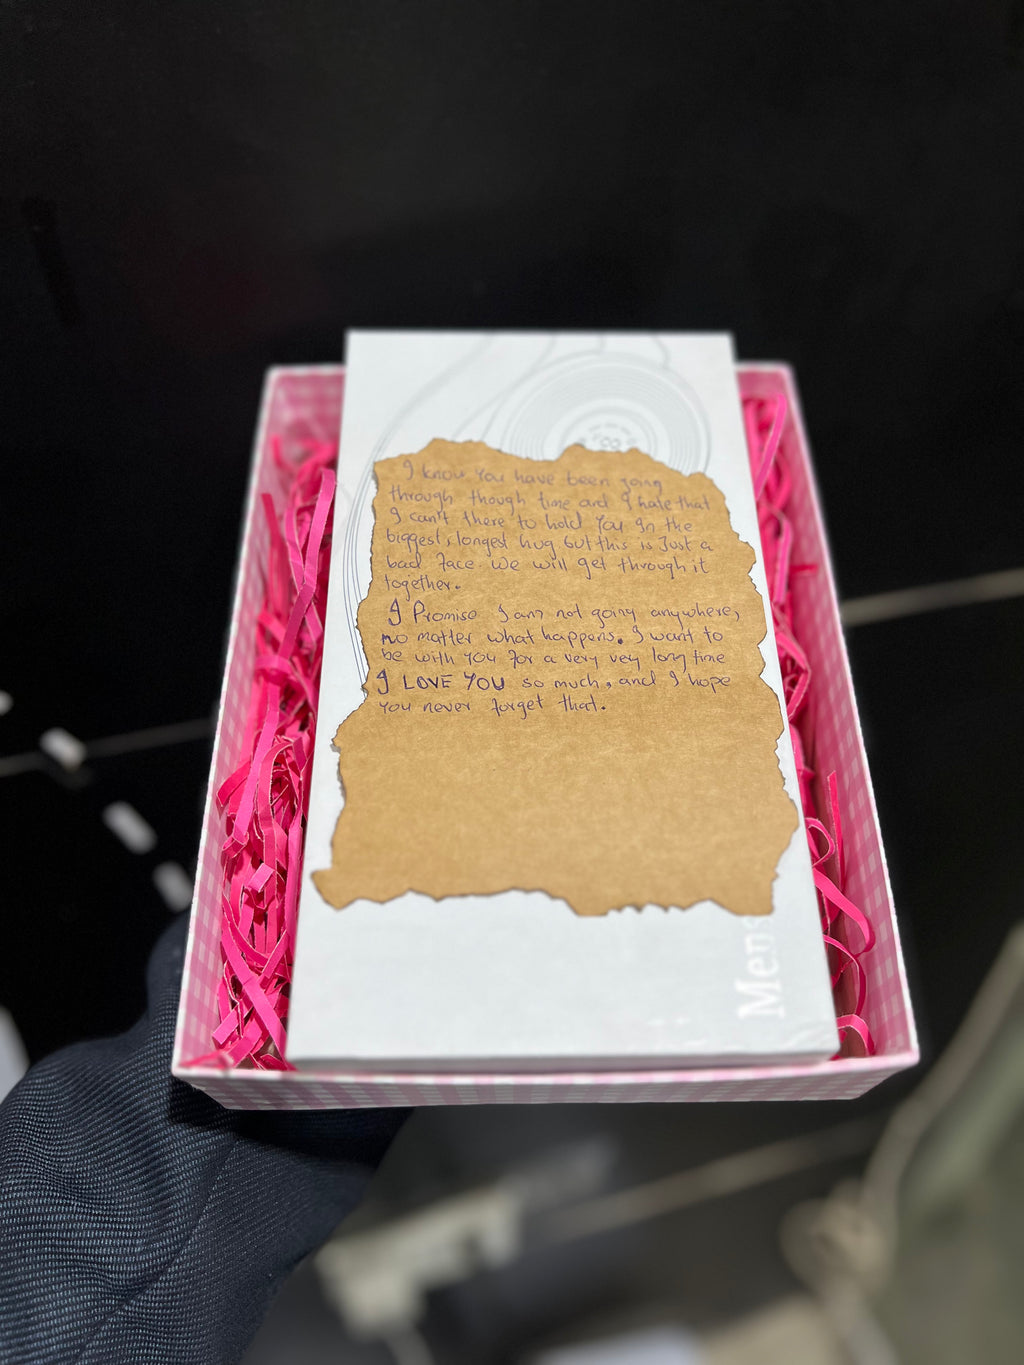 I know You have been going
through though time and I hate that
I can't there to hold You In the
biggest, longest hug but this is Just a
bad Face. We will get through it
together.
I Promise I am not going anywhere,
no matter what happens. I want to
be with you for a very vey long time
I LOVE YOU so much, and I hope
you never forget that.
Mens